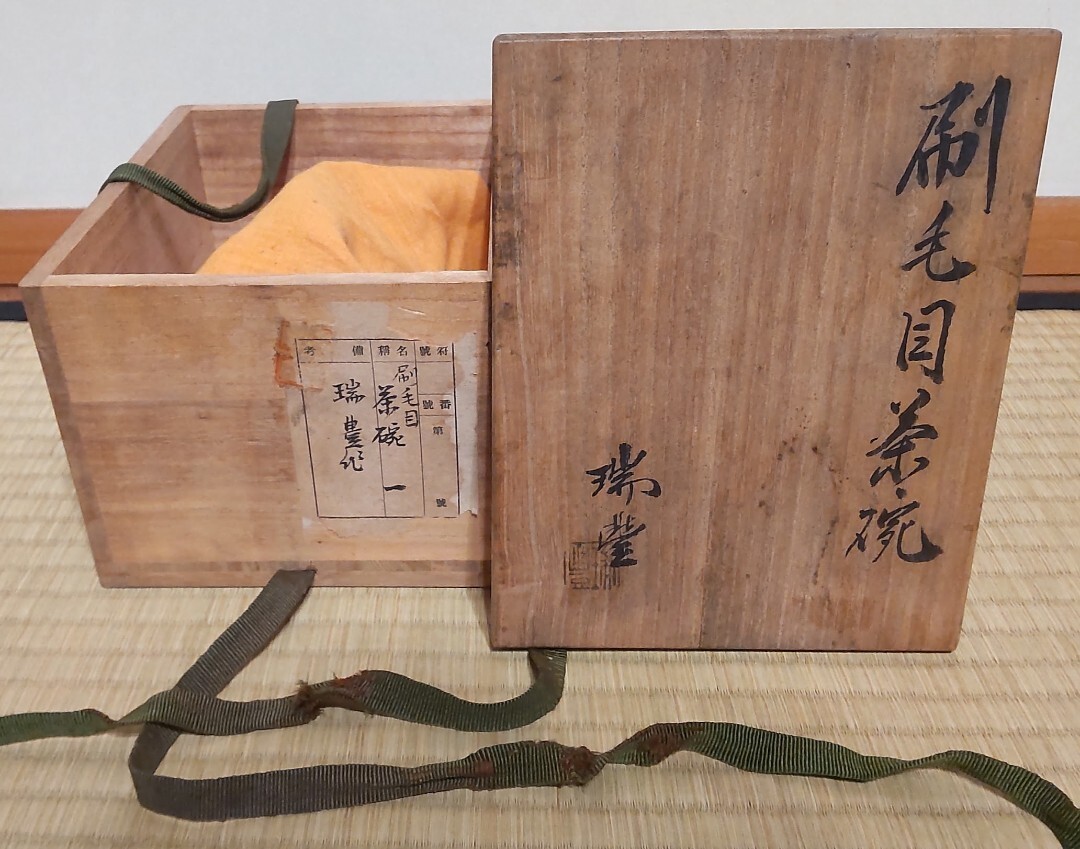 刷毛目茶碗
瑞豊
符號
番號
第 號
名稱
刷毛目
茶碗 一
備考
瑞豊作